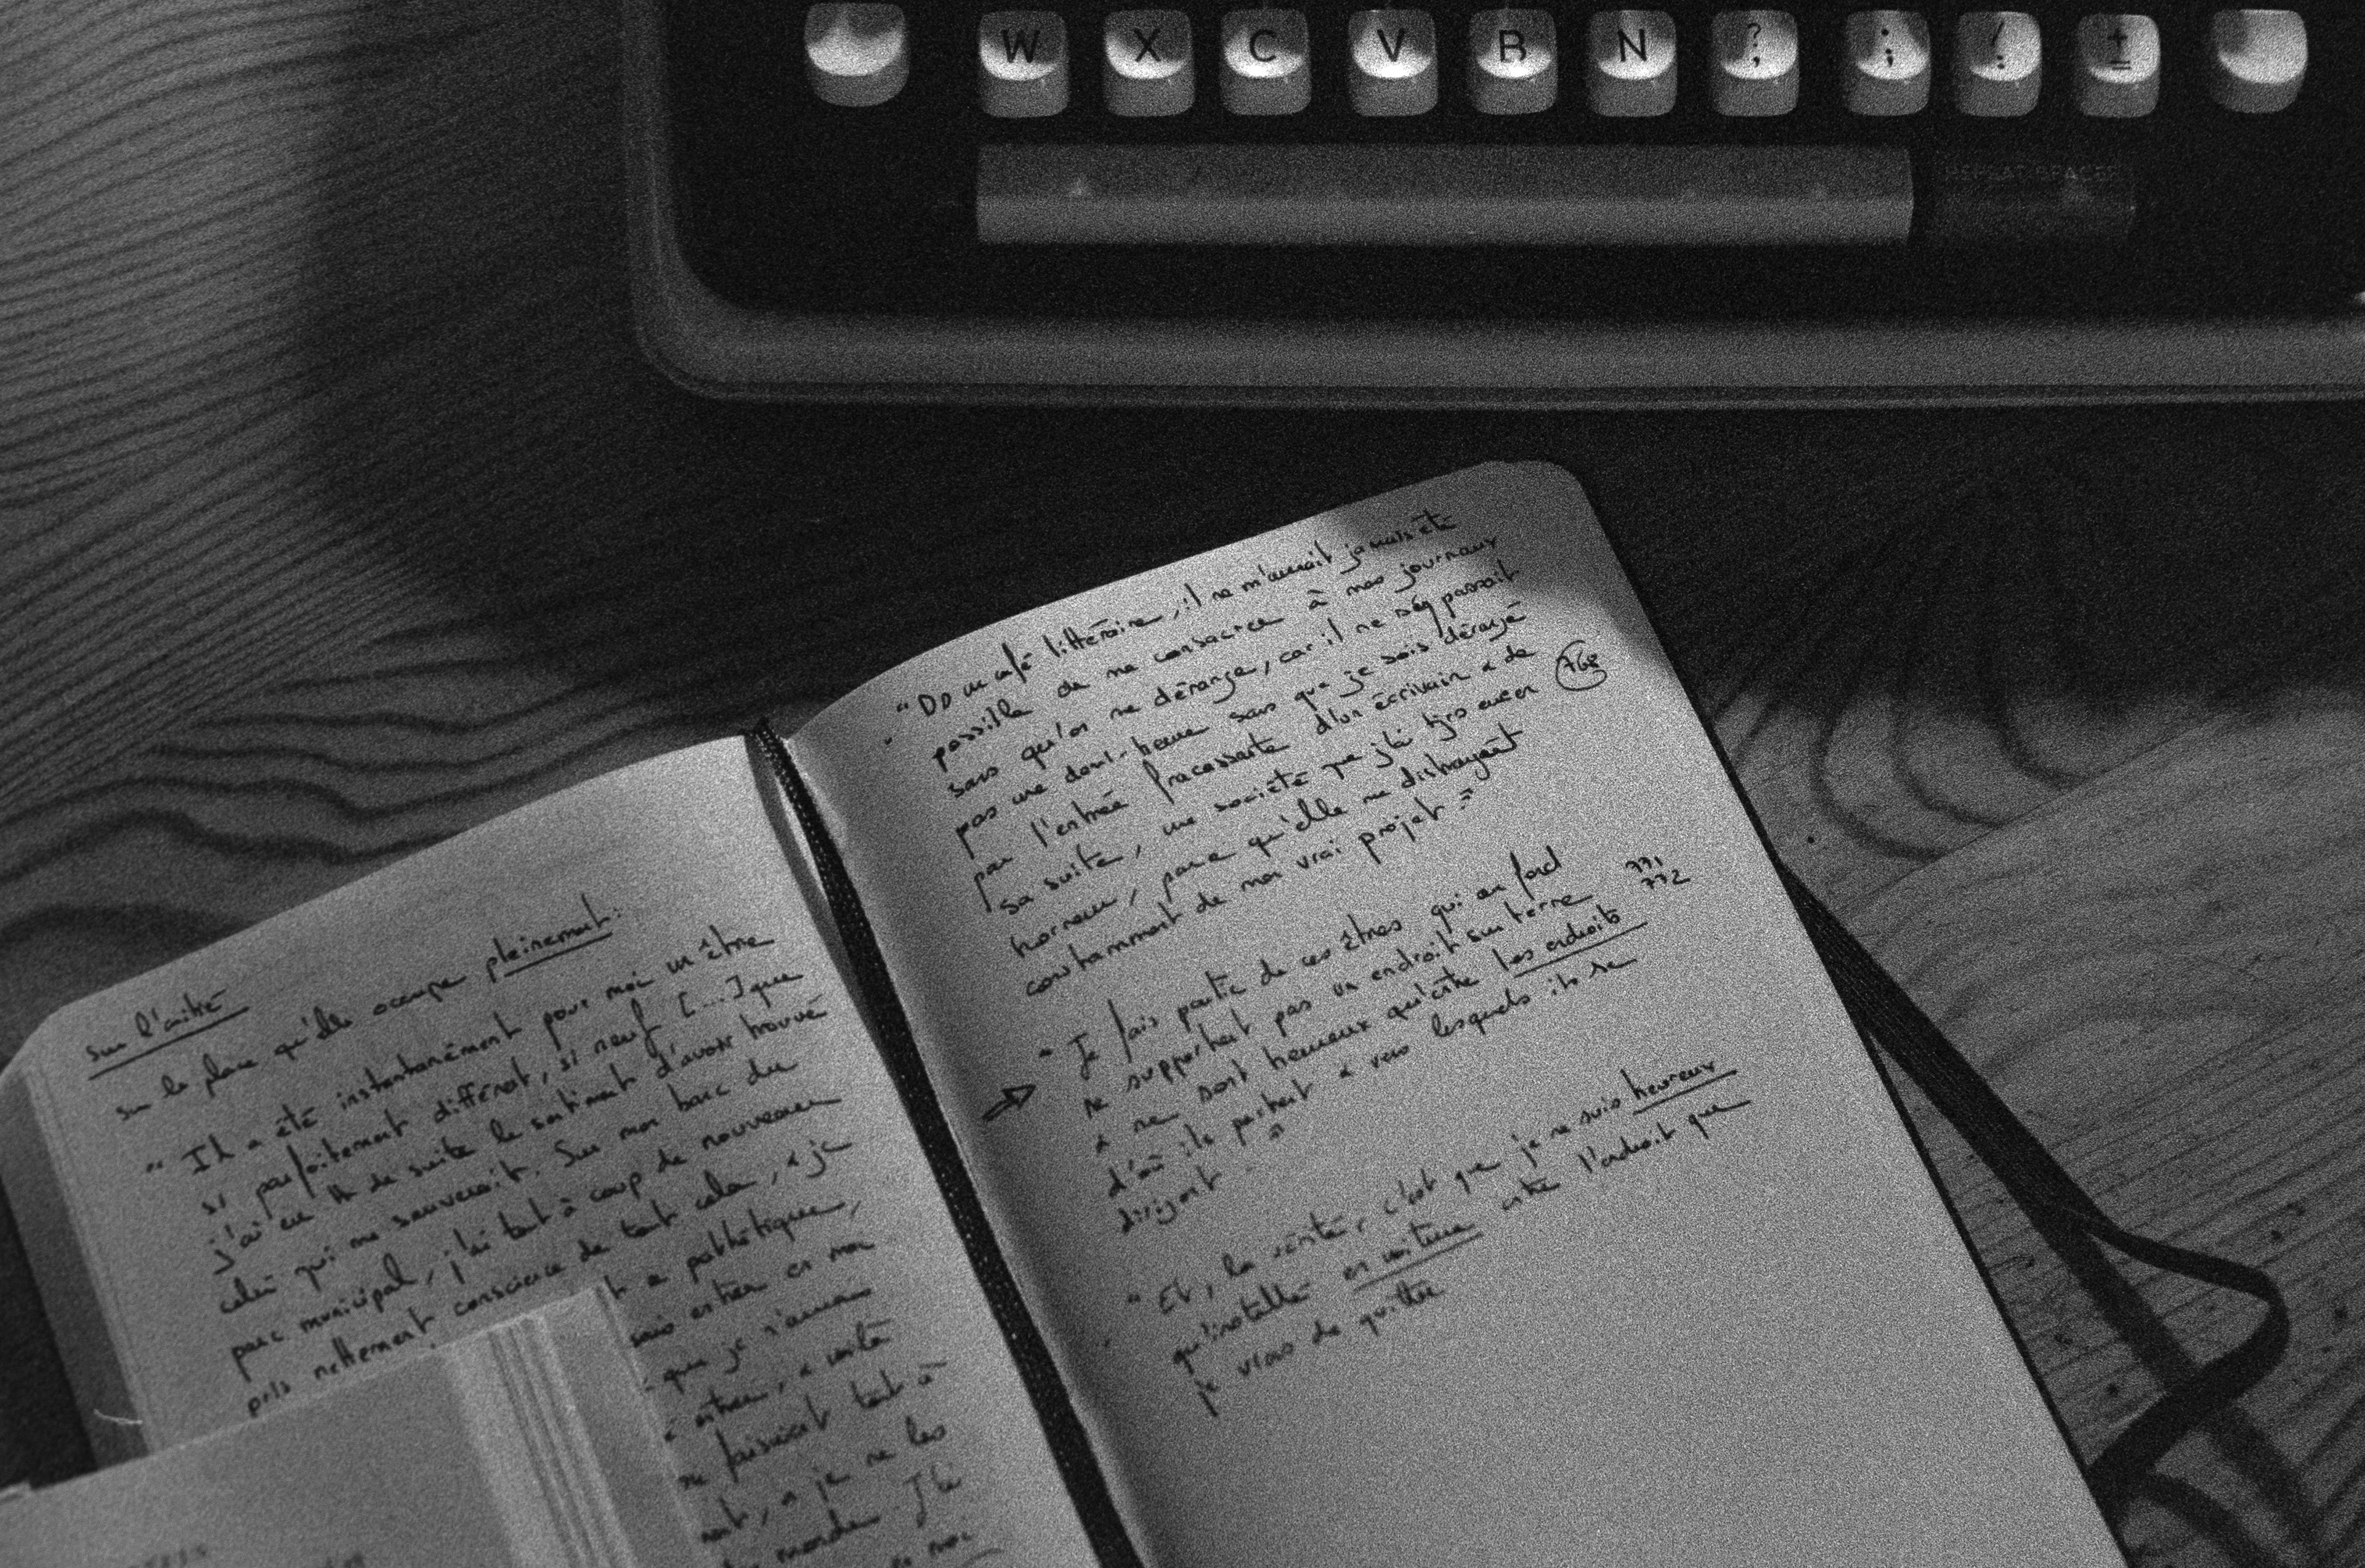 W X C V B N ? , . ; / : + =
REPEAT SPACER
sur l'amitié
sur la place qu'elle occupe pleinement :
" Il a été instantanément pour moi un être
si parfaitement différent, si neuf [...] que
j'ai eu tt de suite le sentiment d'avoir trouvé
celui qui me sauverait. Sur mon banc du
parc municipal, j'ai tout à coup de nouveau
pris nettement conscience de tout cela, & je
pathétique,
entrer en moi
que je n'aurais
entrer, & invité
faisaient tout à
, & je ne les
monde. J'ai
" Ds un café littéraire, il ne m'aurait jamais été
possible de me consacrer à mes journaux
sans qu'on me dérange, car il ne se passait
pas une demi-heure sans que je sois dérangé
par l'entrée fracassante d'un écrivain & de
sa suite, une société que j'ai tjrs eue en 768
horreur, parce qu'elle me distrayait
constamment de mon vrai projet "
" Je fais partie de ces êtres qui au fond 771
ne supportent pas un endroit sur terre 772
& ne sont heureux qu'entre les endroits
d'où ils partent & vers lesquels ils se
dirigent "
" Et, la vérité, c'est que je ne suis heureux
qu'installé en voiture entre l'endroit que
je viens de quitter